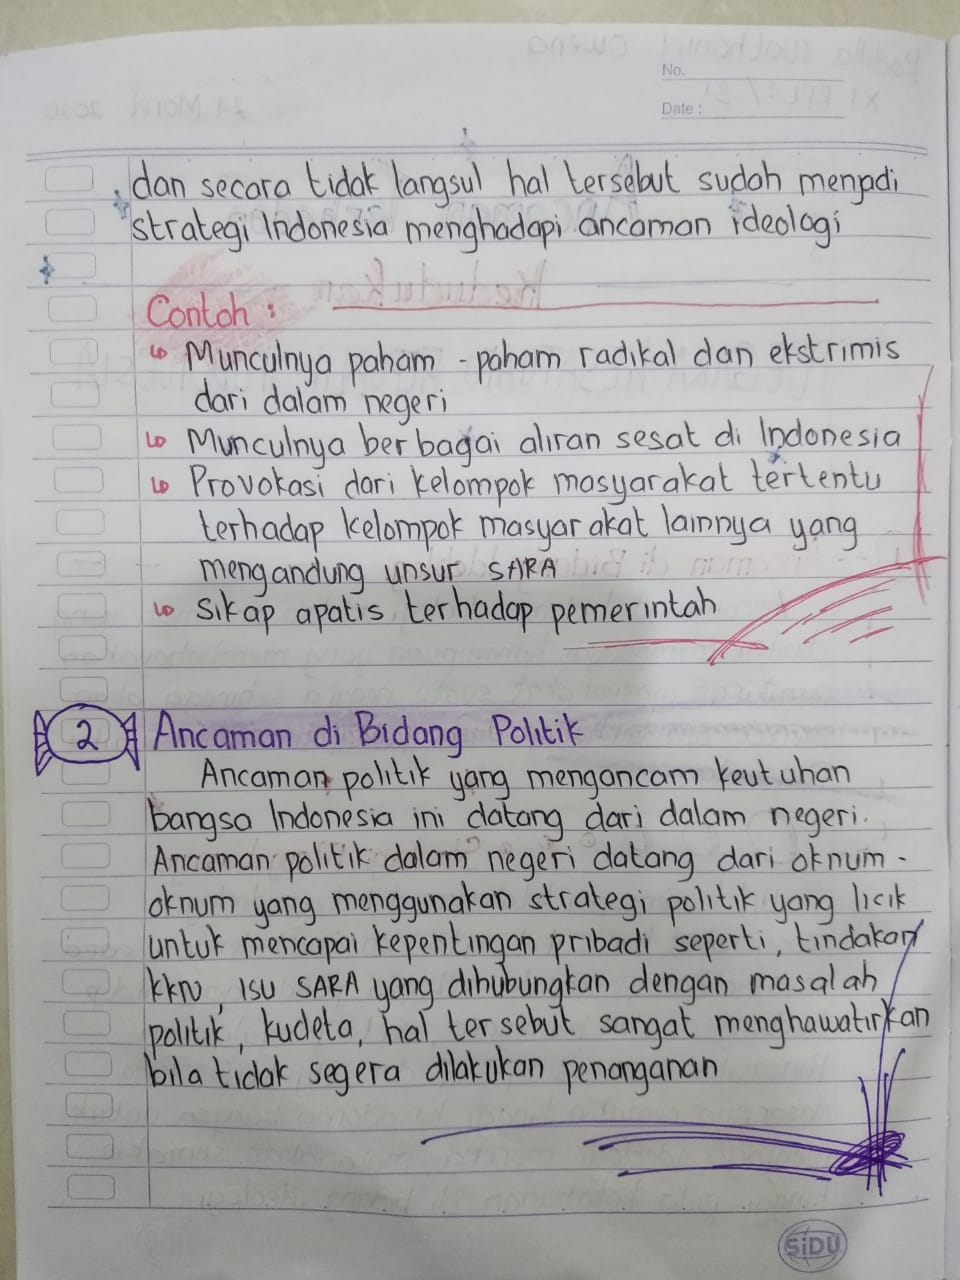 No.
Date :
dan secara tidak langsul hal tersebut sudah menjadi
strategi Indonesia menghadapi ancaman ideologi
Contoh :
Munculnya paham - paham radikal dan ekstrimis
dari dalam negeri
Munculnya berbagai aliran sesat di Indonesia
Provokasi dari kelompok masyarakat tertentu
terhadap kelompok masyarakat lainnya yang
mengandung unsur SARA
Sikap apatis terhadap pemerintah
2 Ancaman di Bidang Politik
Ancaman politik yang mengancam keutuhan
bangsa Indonesia ini datang dari dalam negeri.
Ancaman politik dalam negeri datang dari oknum -
oknum yang menggunakan strategi politik yang licik
untuk mencapai kepentingan pribadi seperti, tindakan
KKN, ISU SARA yang dihubungkan dengan masalah
politik, kudeta, hal tersebut sangat menghawatirkan
bila tidak segera dilakukan penanganan
SiDU